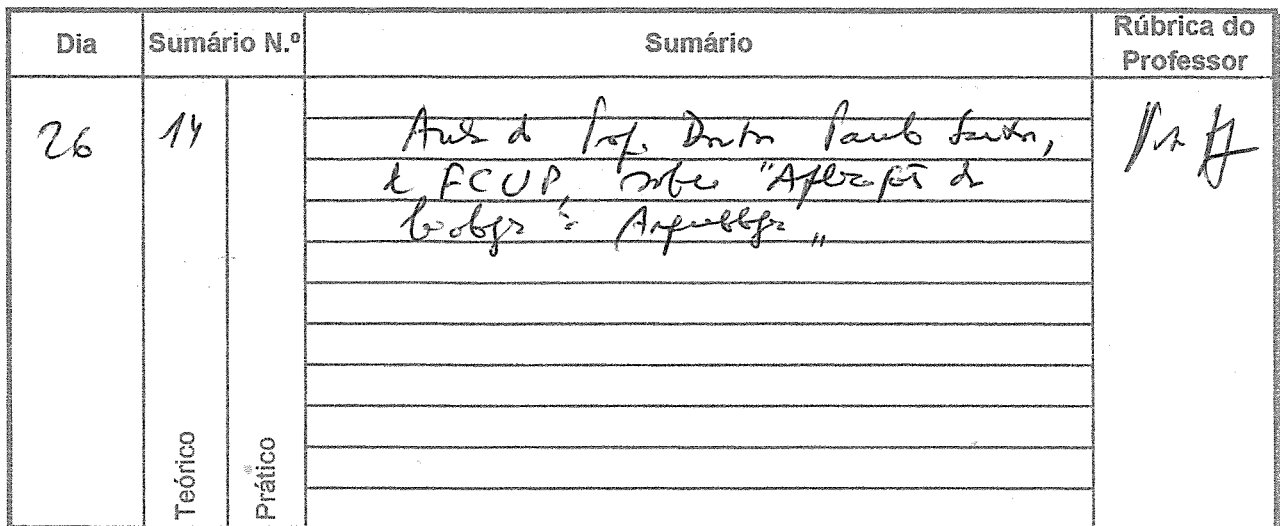 Dia Sumário N.º Sumário Rúbrica do Professor
26 14 Aula do Prof. Doutor Paulo Santos,
da FCUP, sobre "Aplicação da
à Arqueologia"
Teórico Prático